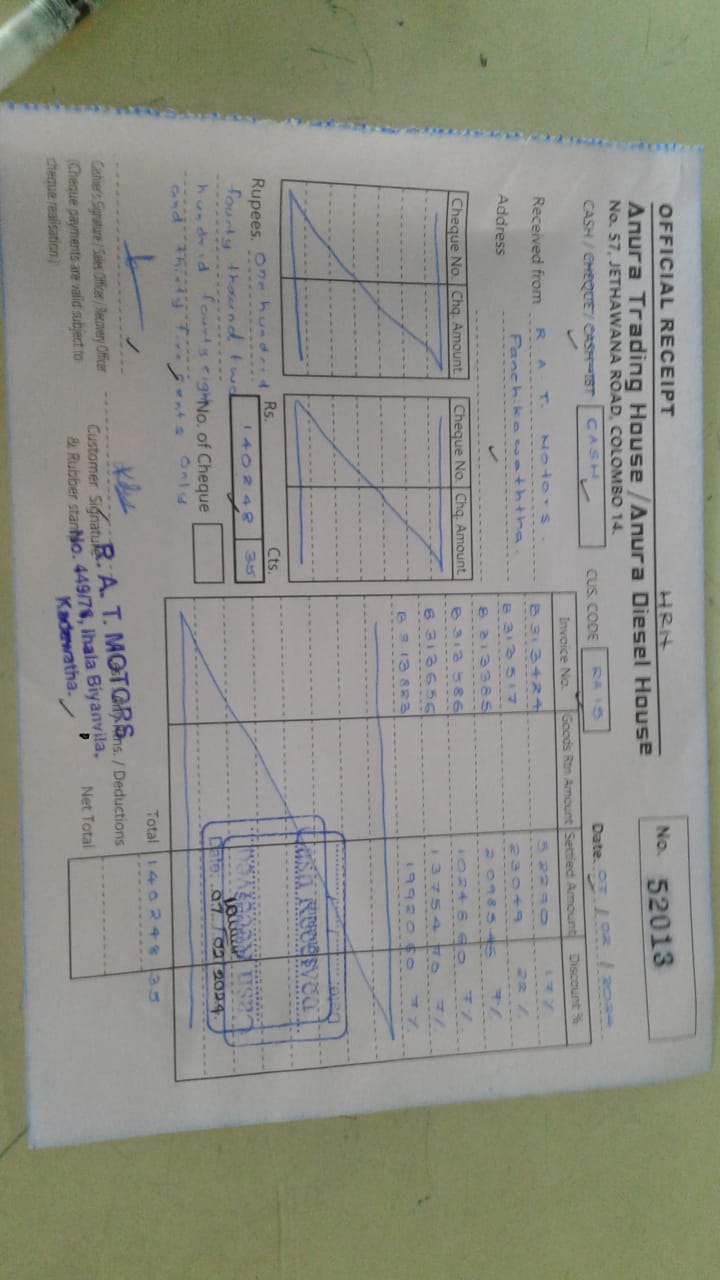 OFFICIAL RECEIPT
HRH
No. 52013
Anura Trading House / Anura Diesel House
No. 57, JETHAWANA ROAD, COLOMBO 14.
CASH / CHEQUE / CASH-IBT CASH
CUS. CODE RA 15
Date. 07 / 02 / 2024
Received from R. A. T. Motors.
Address Panchikawaththa.
Cheque No. Chq. Amount
Cheque No. Chq. Amount
Invoice No. Goods Rtn Amount Settled Amount Discount %
B313424 52290 17%
B313517 23049 22%
B313385 20985 45 7%
B313586 10245 60 7%
B313656 13754 70 7%
B313823 19920 60 7%
Cash Received
Date: 07/02 2024
Total 140248 35
Rupees. One hundrid
fourty thousnd two
hundrid fourty eight
and thirty five cents only
Rs. Cts.
140248 35
No. of Cheque
/ Deductions
Net Total
Cashier's Signature / Sales Officer / Recovery Officer
(Cheque payments are valid subject to
cheque realisation.)
Customer Signature
& Rubber stamp
R. A. T. MOTORS
No. 449/78, Ihala Biyanvila,
Kadawatha.